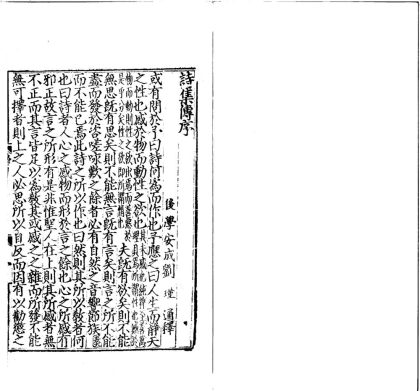 詩集傳序
後學安成劉瑾通釋
或有問於予曰詩何為而作也予應之曰人生而靜天
之性也感於物而動性之欲也
夫既有欲矣則不能
無思既有思矣則不能無言既有言矣則言之所不能
盡而發於咨嗟咏歎之餘者必有自然之音響節族
而不能已焉此詩之所以作也曰然則其所以教者何
也曰詩者人心之感物而形於言之餘也心之所感有
邪正故言之所形有是非惟聖人在上則其所感者無
不正而其言皆足以為教其或感之之雜而所發不能
無可擇者則上之人必思所以自反而因有以勸懲之